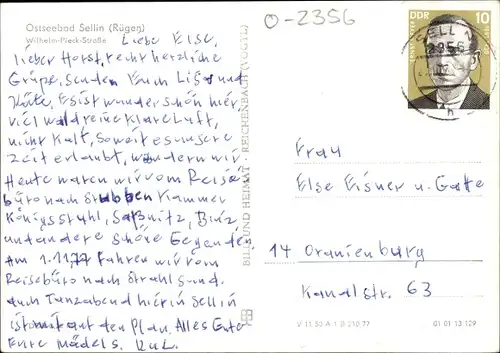 O-2356
Ostseebad Sellin (Rügen)
Wilhelm-Pieck-Straße
Liebe Else,
lieber Horst, recht herzliche
Grüße, senden Euch Lis und
Käte, Es ist wunderschön hier,
viel Wald reine klare Luft,
nicht Kalt, Soweit es unsere
Zeit erlaubt, wandern wir
Heute waren wir vom Reise
büro nach Stubben Kammer
Königsstuhl, Saßnitz, Binz
und andere schöne Gegenden
Am 1.11.77 fahren wir vom
Reisebüro nach Strahlsund.
auch Tanzabend hier in Sellin
ist mit auf den Plan, Alles Gute
Eure Mädels. L. u. K.
BILD UND HEIMAT · REICHENBACH (VOGTL)
DDR 10
SELLIN
2356
Frau
Else Eisner u. Gatte
14 Oranienburg
Kanalstr. 63
V 11 50 A 1 B 210 77
01 01 13 129